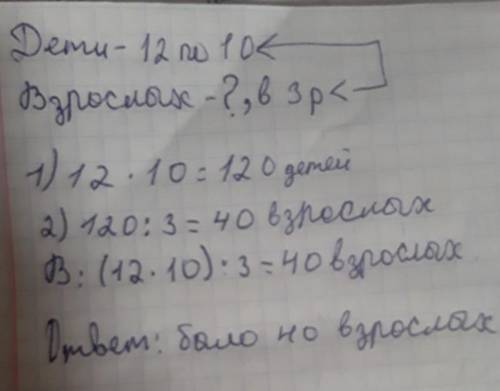 Дети - 12 по 10
Взрослых - ?, в 3 р <
1) 12 · 10 = 120 детей
2) 120 : 3 = 40 взрослых
В: (12 · 10) : 3 = 40 взрослых
Ответ: было 40 взрослых